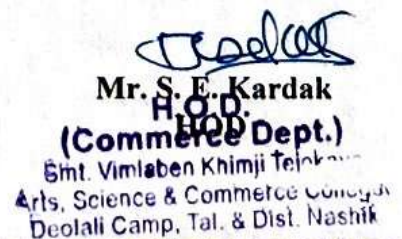 Mr. S. E. Kardak
H.O.D.
HOD
(Commerce Dept.)
Smt. Vimlaben Khimji
Arts, Science & Commerce
Deolali Camp, Tal. & Dist. Nashik